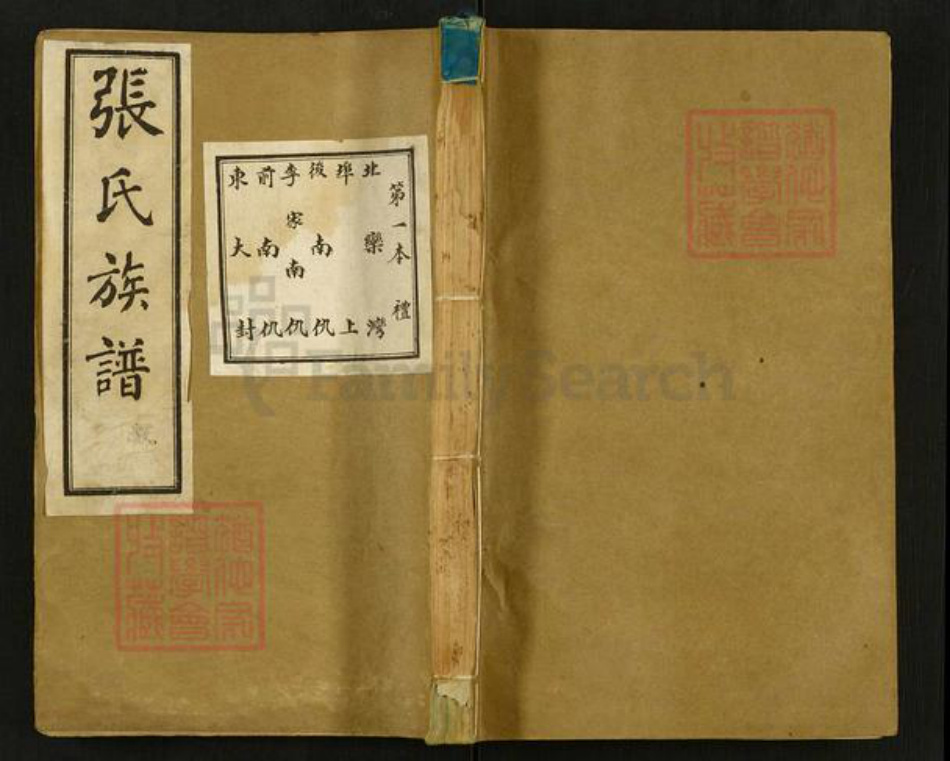 張氏族譜
第一本 禮
北欒灣
埠上
後南仇
李家南仇
前南仇
東大封
FamilySearch